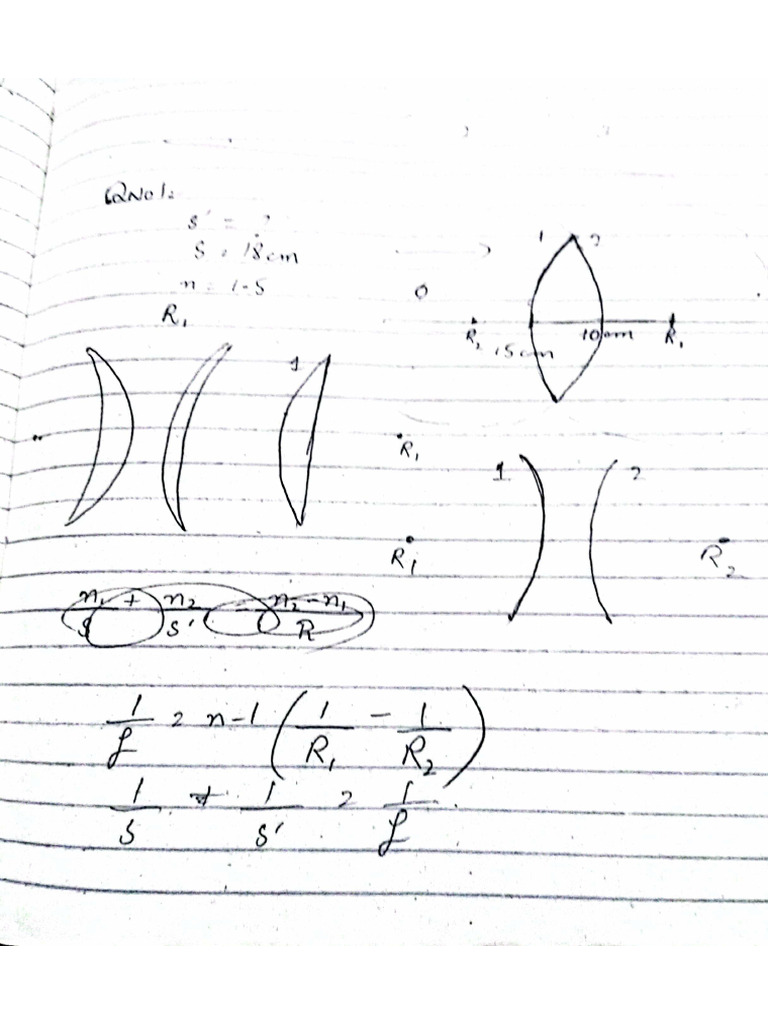 QNo1:
s' = ?
S = 18cm
n = 1.5
R₁
1 2
O
R₂ 15cm 10cm R₁
1
R₁
1 2
R₁ R₂
n₁/S + n₂/S' = n₂-n₁/R
1/f = n-1 (1/R₁ - 1/R₂)
1/s + 1/s' = 1/f